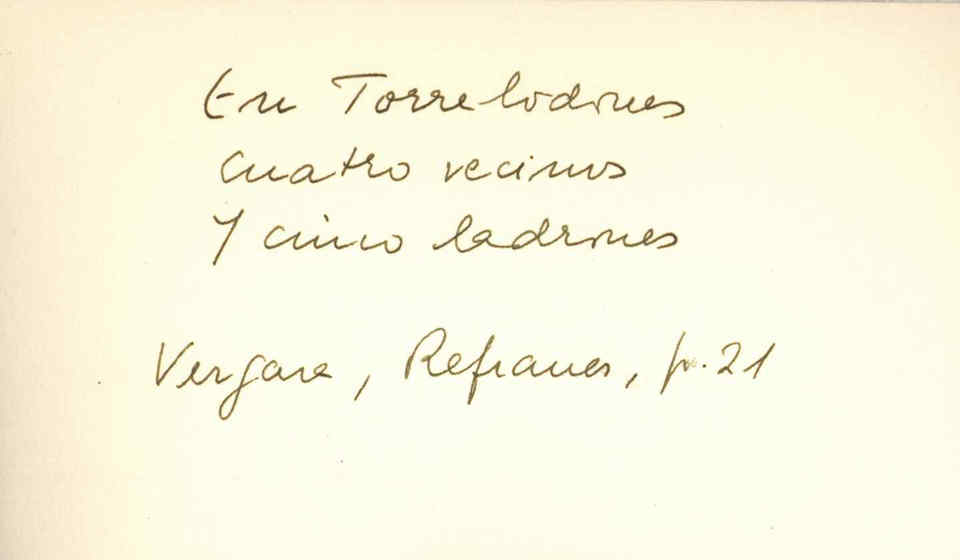 En Torrelodones
cuatro vecinos
y cinco ladrones
Vergara, Refranes, p. 21